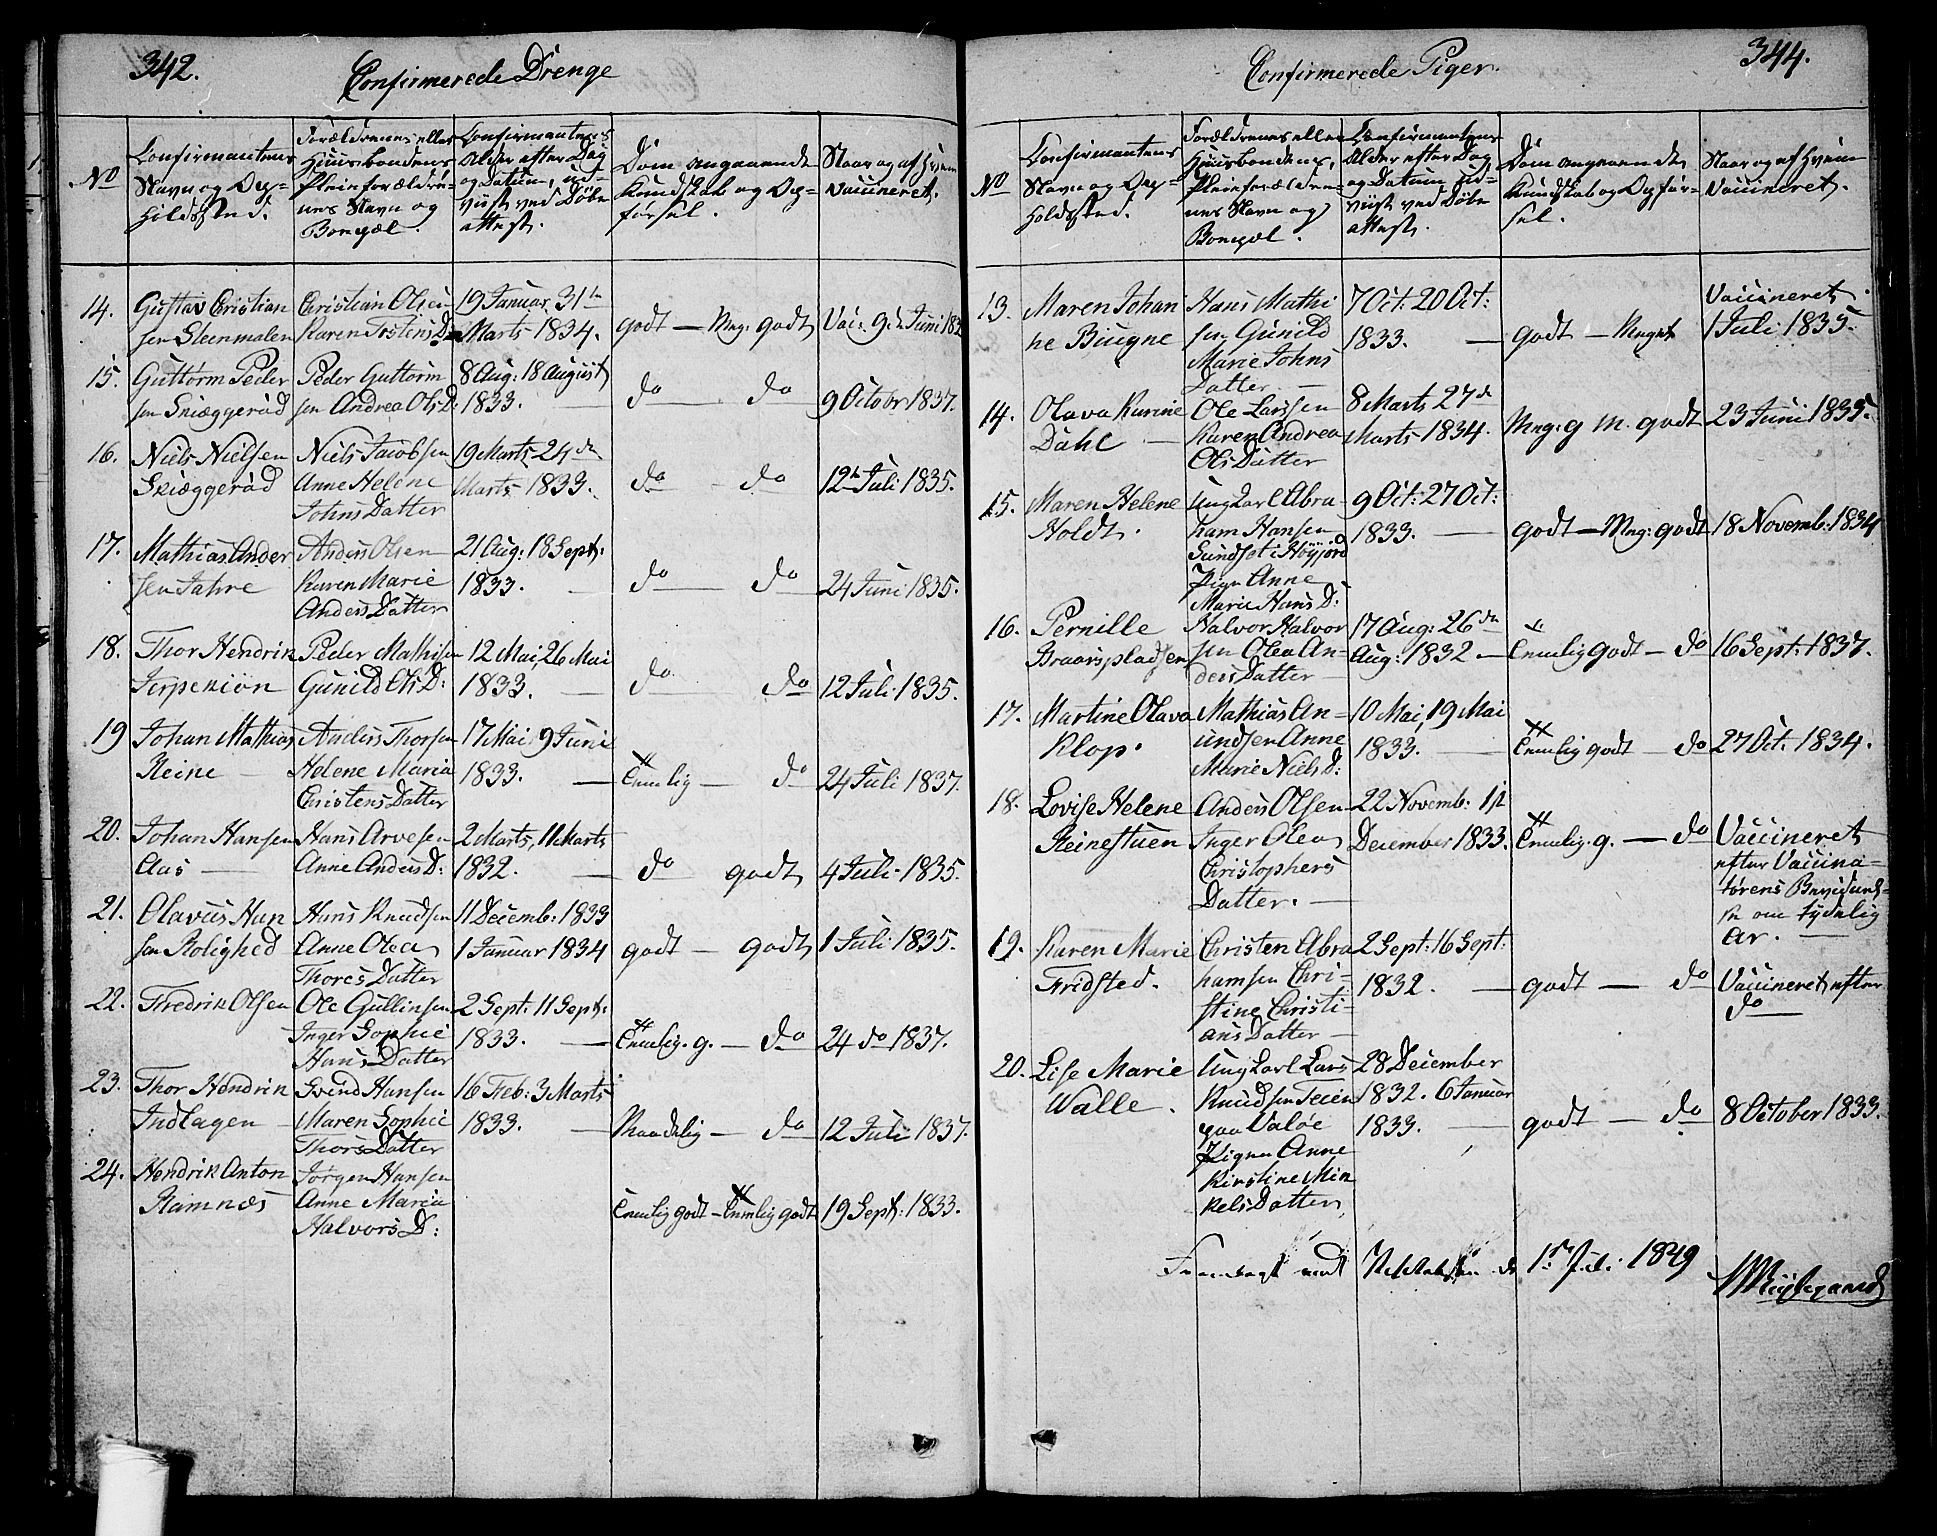 342.
Confirmerede Drenge
No
Confirmantens Navn og Op-
holdssted.
Forældrenes eller
Huusbondens
Pleieforældre-
nes Navn og
Boepæl.
Confirmantens
Alder efter Dag
og Datum, ud-
viist ved Døbe
attest.
Dom angaaende
Kundskab og Op-
førsel.
Naar og af Hvem
Vaccineret.
14.
Gustav Cristian
sen Steenmalen
Christian Olsen
Karen Tostens D.
19 Januar, 31te
Marts 1834.
godt — Mg: godt
Vac. 9de Juni
15.
Guttorm Peder
sen Skiæggerød
Peder Guttorm
sen Andrea Ols D:
8 Aug: 18 August
1833. —
do — do
9 Octobr 1837.
16.
Niels Nielsen
Skiæggerød
Niels Jacobsen
Anne Helene
Johns Datter
19 Marts 24de
Marts 1833.
do — do
12te Juli 1835.
17.
Mathias Ander
sen Jahre
Anders Olsen
Karen Marie
Anders Datter
21 Aug: 18 Sept:
1833. —
do — do
24 Juni 1835.
18.
Thor Hendrik
Jerpekiøn
Peder Mathisen
Gunild Ols D:
12 Mai, 26 Mai
1833. —
do — do
12 Juli 1835.
19
Johan Mathias
Reine —
Anders Thorsen
Helene Maria
Christens Datter
17 Mai, 9 Juni
1833. —
Temlig — do
24 Juli 1837.
20.
Johan Hansen
Aas —
Hans Arvesen
Anne Anders D:
2 Marts, 11 Marts
1832. —
do godt
4 Juli 1835.
21.
Olavus Han
sen Rolighed
Hans Knudsen
Anne Olea
Thores Datter
11 Decemb: 1833
1 Januar 1834
godt — godt
1 Juli 1835.
22.
Fredrik Olsen
Ole Gullinsen
Inger Sophie
Hans Datter
2 Sept: 11 Sept:
1833. —
Temlig. g. — do
24 do 1837.
23.
Thor Hendrik
Indlagen —
Svend Hansen
Maren Sophie
Thors Datter
16 Feb: 3 Marts
1833. —
Maadelig — do
12 Juli 1837.
24.
Hendrik Anton
Ramnæs
Jørgen Hansen
Anne Maria
Halvors D:
Temlig godt — Temlig godt
19 Sept: 1833.
344.
Confirmerede Piger.
No
Confirmantens
Navn og Op-
holdssted.
Forældrenes eller
Huusbondens,
Pleieforældre-
nes Navn og
Boepæl.
Confirmantens
Alder efter Dag
og Datum ud-
viist ved Døbe
attest.
Dom angaaende
Kundskab og Opfør-
sel.
Naar og af Hvem
Vaccineret.
13.
Maren Johan
ne Biugne
Hans Mathi
sen Gunild
Marie Johns
Datter. —
7 Oct: 20 Oct:
1833. —
godt — Meget
Vaccineret
1 Juli 1835.
14.
Olava Karine
Dahl —
Ole Larssen
Karen Andrea
Ols Datter
8 Marts 27de
Marts 1834.
Mg: g M. godt
23 Juni 1835.
15.
Maren Helene
Holdt.
Ung Karl Abra-
ham Hansen
Sundset i Høyjord
Pige Anne
Marie Hans D:
9 Oct: 27 Oct:
1833. —
godt — Mg: godt
18 Novemb: 1834
16.
Pernille
Braarspladsen
Halvor Halvor
sen Olea An-
ders Datter —
17 Aug: 26de
Aug: 1832 —
Temlig godt — do
16 Sept: 1837.
17.
Martine Olava
Klop.
Mathias An-
undsen Anne
Marie Niels D:
10 Mai, 19 Mai
1833. —
Temlig godt — do
27 Oct. 1834.
18.
Lovise Helene
Reinestuen
Anders Olsen
Inger Olea
Christophers
Datter. —
22 Novemb: 1st
December 1833.
Temlig. g. — do
Vaccineret
efter Vaccina-
tørens Bevidnel-
se om tydelig
ar. —
19.
Karen Marie
Fridsted.
Christen Abra
hamsen Chri-
stine Christi-
ans Datter —
2 Sept: 16 Sept:
1832. —
godt — do
Vaccineret efter
do —
20.
Lise Marie
Walle.
Ung Karl Lars
Knudsen Teien
paa Valøe
Pigen Anne
Kirstine Mik
kels Datter
28 December
1832. 6 Januar
1833. —
godt — do
8 October 1833.
Fremlagt ved Visitatsen d. 1ste Juli 1849